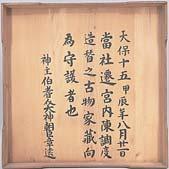 天保十五甲辰年八月廿一日
當社遷宮内陳調度
造替之古物家蔵向
為守護者也
神主伯耆大神朝臣章遠